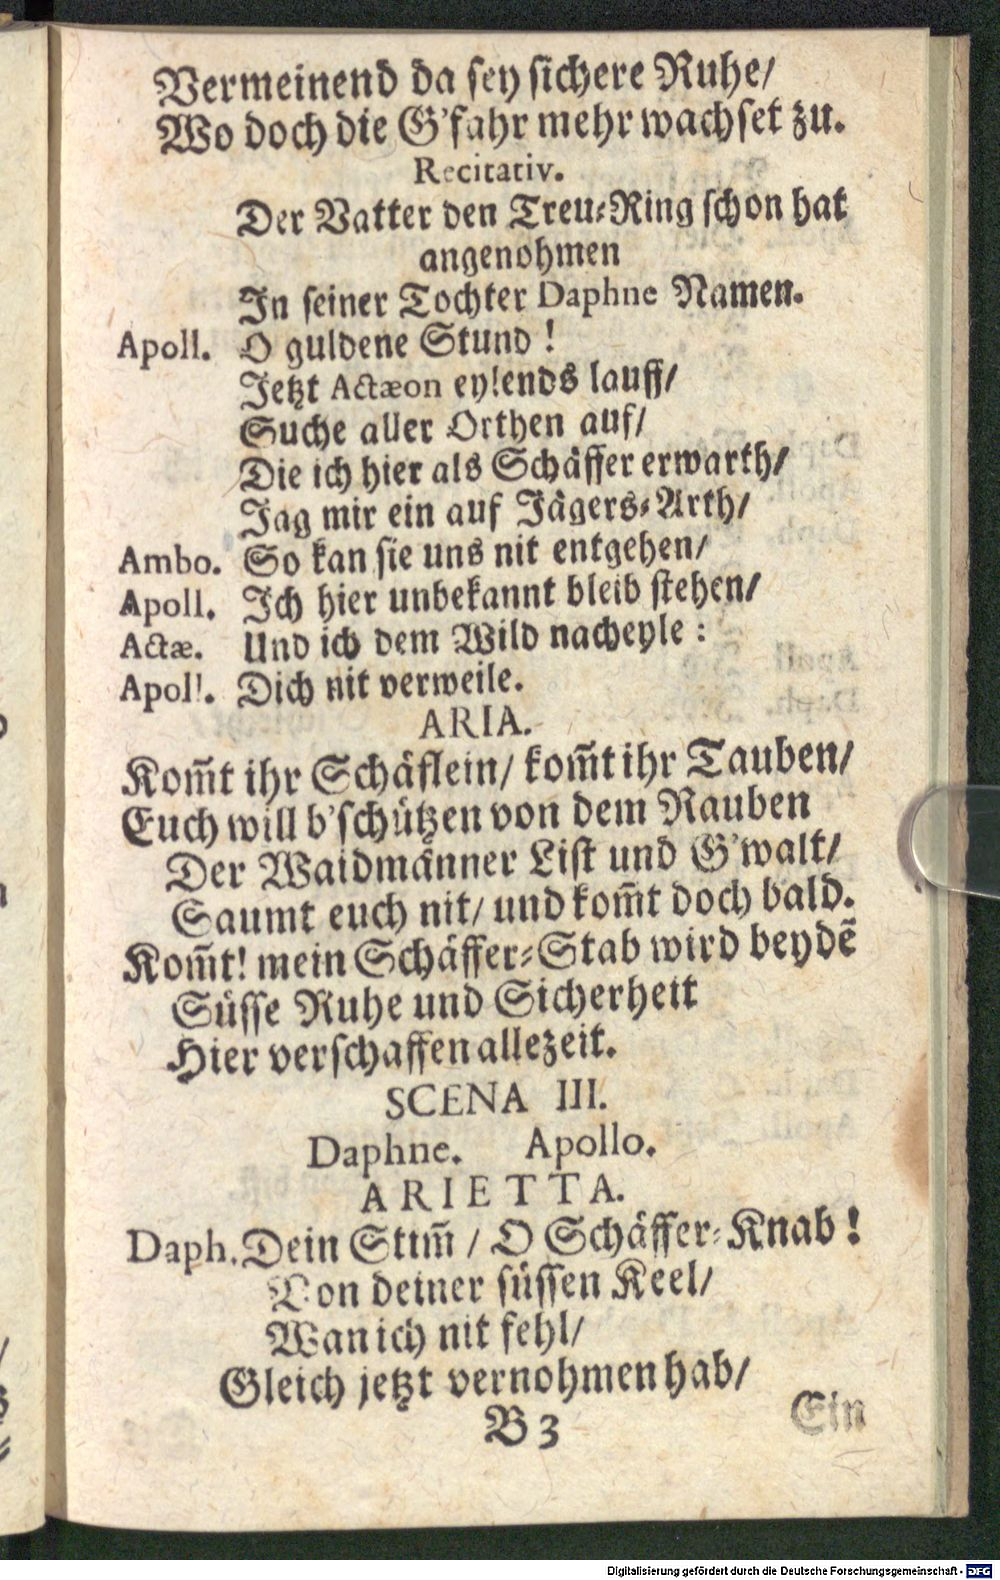 Vermeinend da sey sichere Ruhe/
Wo doch die G'fahr mehr wachset zu.
Recitativ.
Der Vatter den Treu-Ring schon hat
angenohmen
In seiner Tochter Daphne Namen.
Apoll. O guldene Stund!
Jetzt Actæon eylends lauff/
Suche aller Orthen auf/
Die ich hier als Schäffer erwarth/
Jag mir ein auf Jägers-Arth/
Ambo. So kan sie uns nit entgehen/
Apoll. Ich hier unbekannt bleib stehen/
Actæ. Und ich dem Wild nacheyle:
Apoll. Dich nit verweile.
ARIA.
Kom̃t ihr Schäflein/ kom̃t ihr Tauben/
Euch will b'schützen von dem Rauben
Der Waidmänner List und G'walt/
Saumt euch nit/ und kom̃t doch bald.
Kom̃t! mein Schäffer-Stab wird beydẽ
Süsse Ruhe und Sicherheit
Hier verschaffen allezeit.
SCENA III.
Daphne. Apollo.
ARIETTA.
Daph. Dein Stim̃ / O Schäffer-Knab!
Von deiner süssen Keel/
Wan ich nit fehl/
Gleich jetzt vernohmen hab/
B 3
Ein
Digitalisierung gefördert durch die Deutsche Forschungsgemeinschaft - DFG